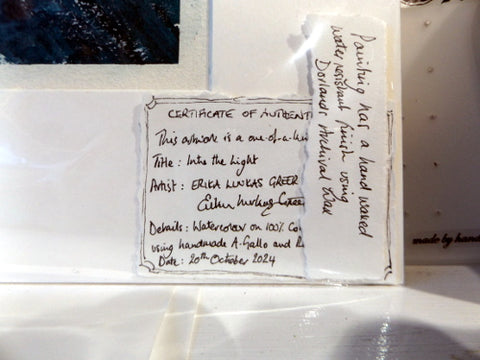 CERTIFICATE OF AUTHENTI
This artwork is a one-of-a-kin
Title: Into the Light
Artist: ERIKA LUNKAS GREER
Details: Watercolour on 100% Co
using handmade A. Gallo and R
Date: 20th October 2024
Painting has a hand waxed
water resistant finish using
Dorlands Archival Wax
made by hand